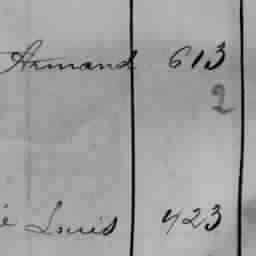 Armand 613
2
é Louis 423